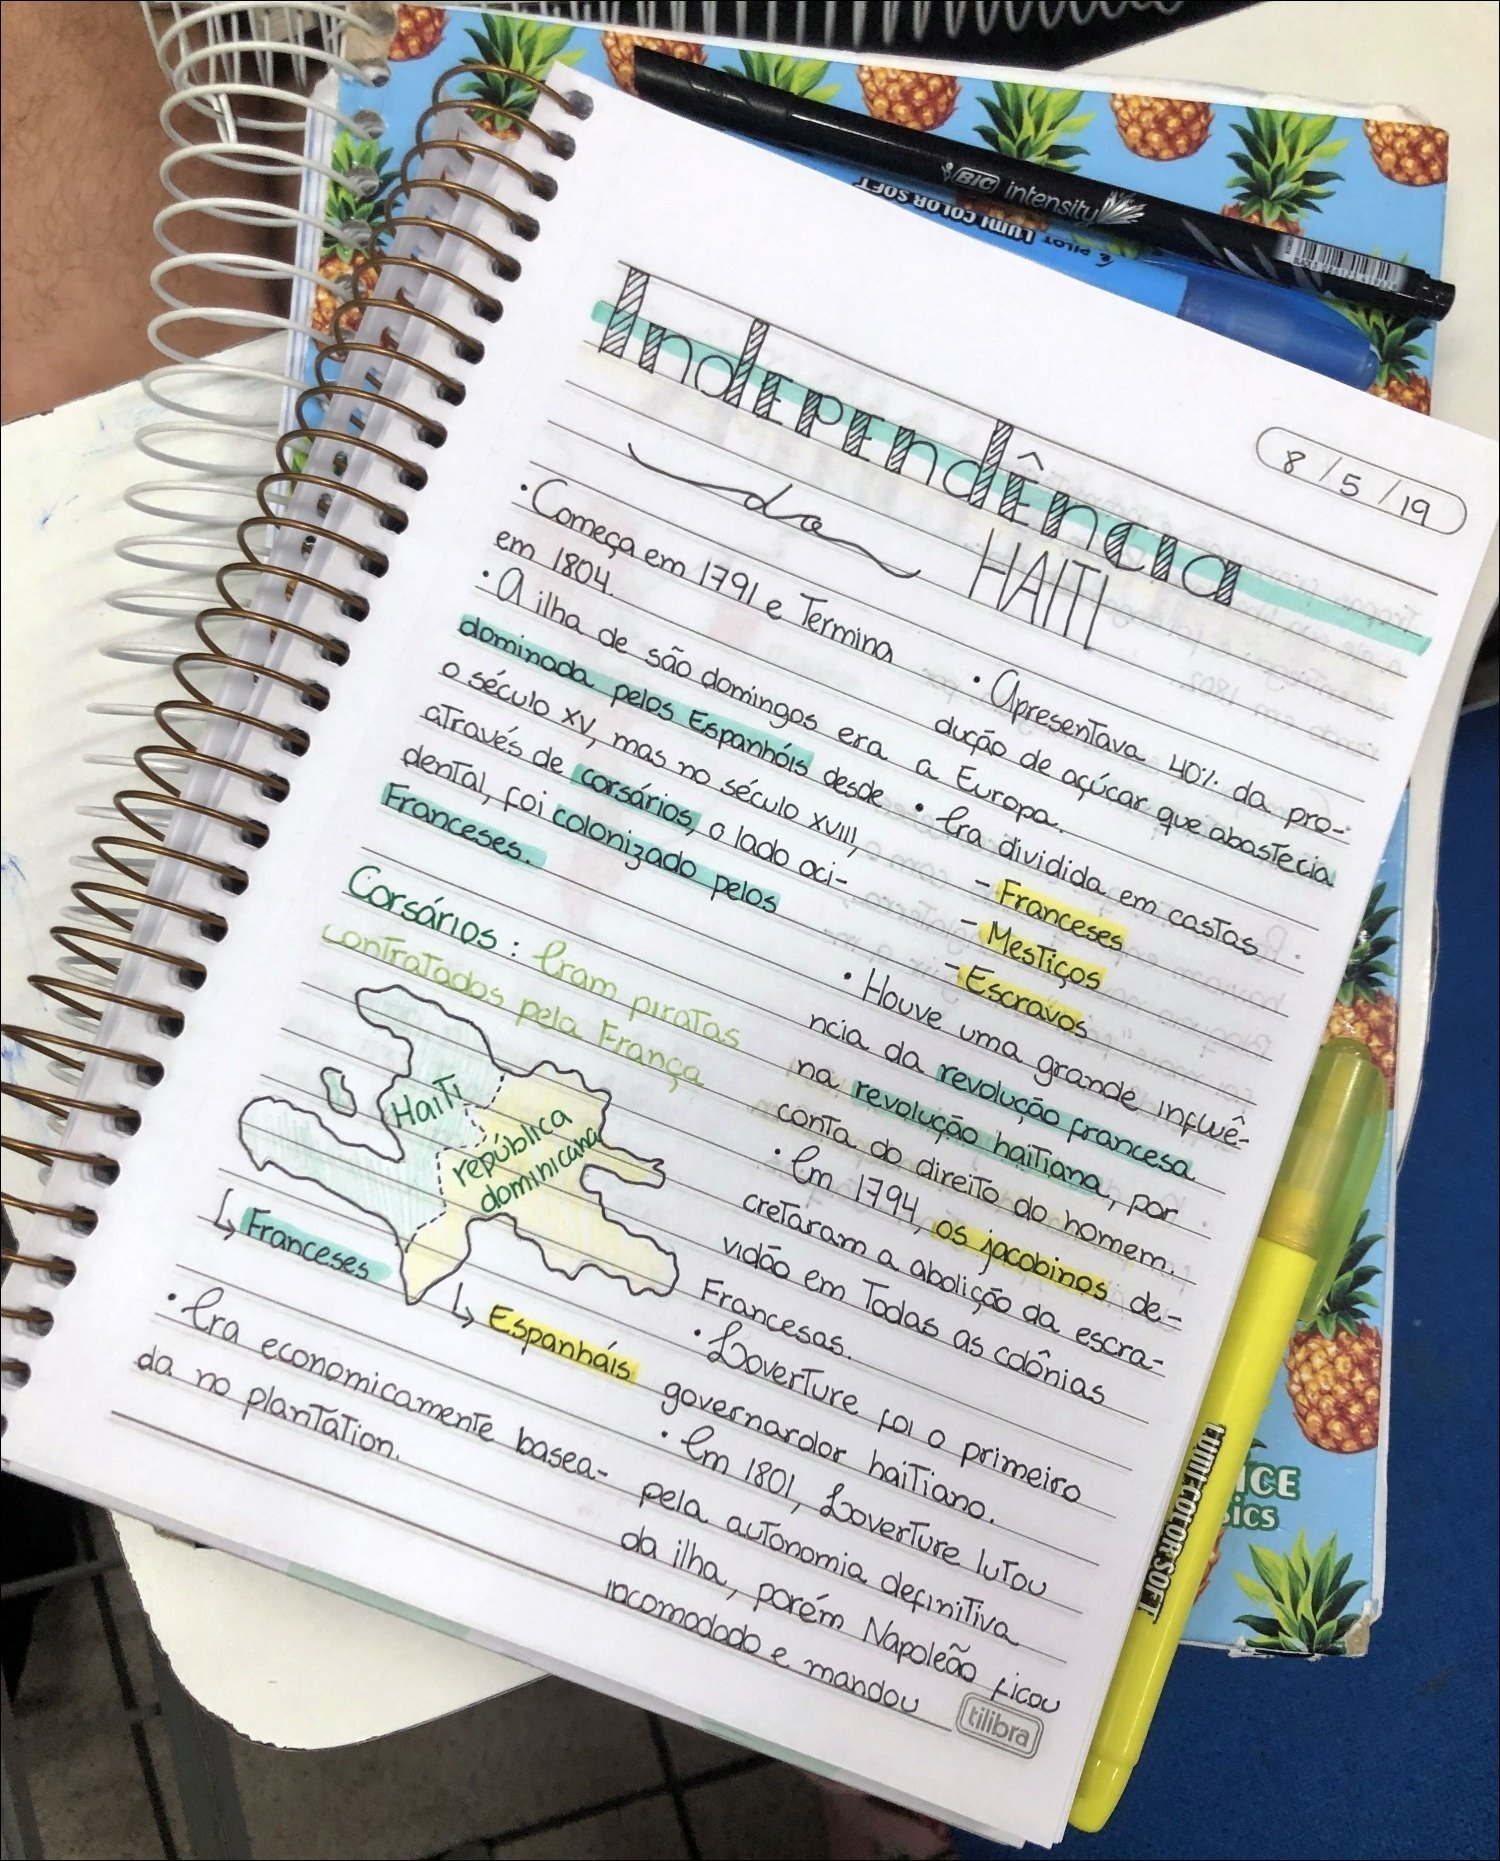 BIC intensity
PILOT LUMI COLOR SOFT
8/5/19
Independência
do HAITI
• Começa em 1791 e Termina
em 1804.
• A ilha de são domingos era a
dominada pelos Espanhóis desde
o século XV, mas no século XVIII,
através de corsários, o lado oci-
dental, foi colonizado pelos
Franceses.
Corsários: Eram piratas
contratados pela França
Haiti
república
dominicana
↳ Franceses
↳ Espanháis
• Era economicamente basea-
da no plantátion.
• Apresentava 40% da pro-
dução de açúcar que abastecia
Europa.
• Era dividida em castas
- Franceses
- Mestiços
- Escravos
• Houve uma grande influê-
ncia da revolução francesa
na revolução haitiana, por
conta do direito do homem.
• Em 1794, os jacobinos de-
cretaram a abolição da escra-
vidão em Todas as colônias
Francesas.
• Loverture foi o primeiro
governardor haitiano.
• Em 1801, Loverture lutou
pela autonomia definitiva
da ilha, porém Napoleão ficou
incomodado e mandou
tilibra
LUMI COLOR SOFT
ICE
sics